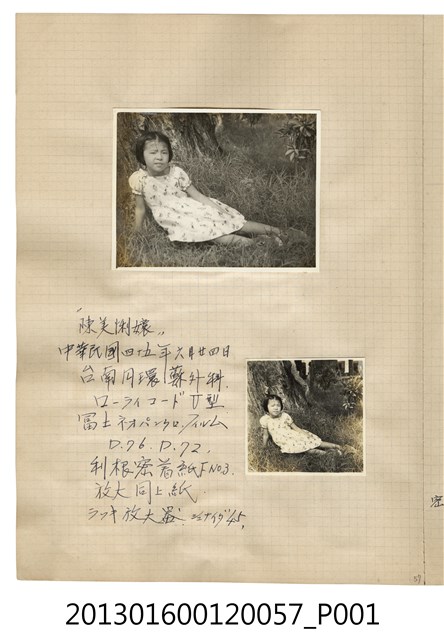 "陳美悧孃"
中華民國四十五年六月廿四日
台南円環蘇外科
ローライコード V型
冨士ネオパンクロ.フィルム
D.76. D.72.
利根密着紙F No3.
放大同上紙
ラッキ放大器 4.5,
密
57
201301600120057_P001